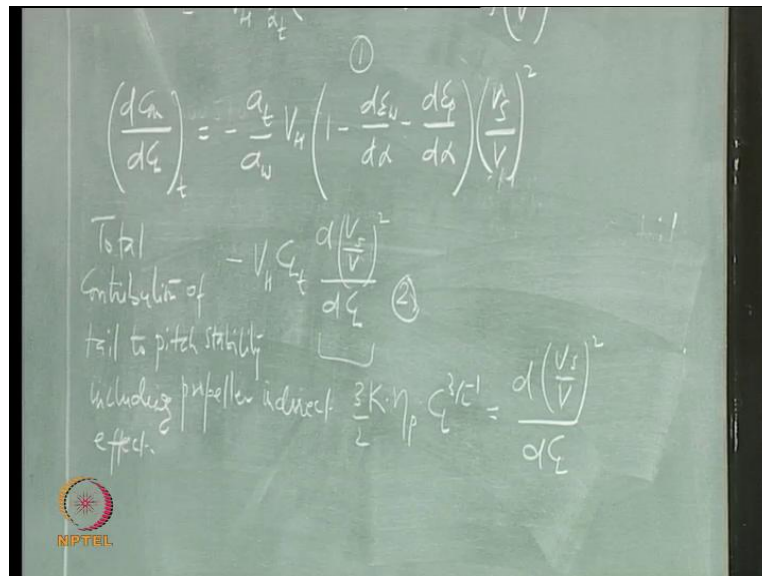 ①
(dCm/dCL)t = - at/aw VH (1 - dεw/dα - dεp/dα) (Vs/V)²
Total
Contribution of
tail to pitch stability
including propeller indirect
effect.
- VH CLt d(Vs/V)²/dCL ②
3/2 K·ηp CL^(3/2-1) = d(Vs/V)²/dCL
NPTEL